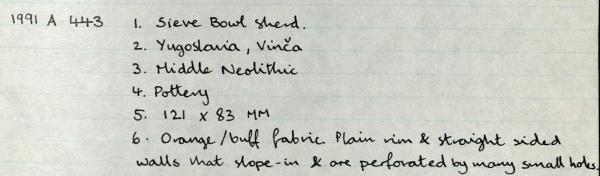 1991 A 443 1. Sieve Bowl Sherd.
2. Yugoslavia, Vinča
3. Middle Neolithic
4. Pottery
5. 121 x 83 MM
6. Orange/buff fabric. Plain rim & straight sided
walls that slope-in & are perforated by many small holes.